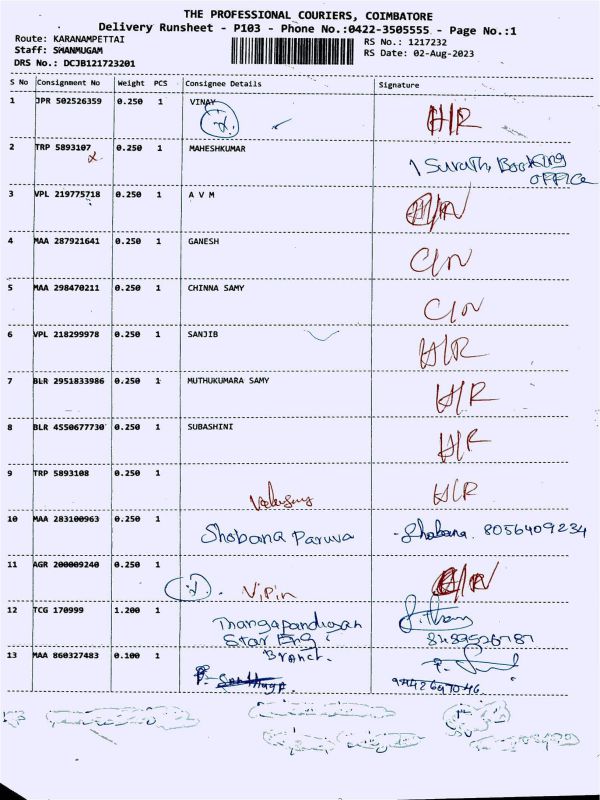 THE PROFESSIONAL COURIERS, COIMBATORE
Delivery Runsheet - P103 - Phone No.:0422-3505555 - Page No.:1
Route: KARANAMPETTAI RS No.: 1217232
Staff: SHANMUGAM RS Date: 02-Aug-2023
DRS No.: DCJB121723201
S No Consignment No Weight PCS Consignee Details Signature
1 JPR 502526359 0.250 1 VINAY H/R
2 TRP 5893107 0.250 1 MAHESHKUMAR Booking
OFFICE
3 VPL 219775718 0.250 1 A V M
4 MAA 287921641 0.250 1 GANESH C/N
5 MAA 298470211 0.250 1 CHINNA SAMY C/N
6 VPL 218299978 0.250 1 SANJIB H/R
7 BLR 2951833986 0.250 1 MUTHUKUMARA SAMY H/R
8 BLR 4550677730 0.250 1 SUBASHINI H/R
9 TRP 5893108 0.250 1 H/R
10 MAA 283100963 0.250 1 Shobana Paruva Shobana. 8056409234
11 AGR 200009240 0.250 1 Vipin
12 TCG 170999 1.200 1 Thangapandiyan
Star Eng
Branch.
13 MAA 860327483 0.100 1